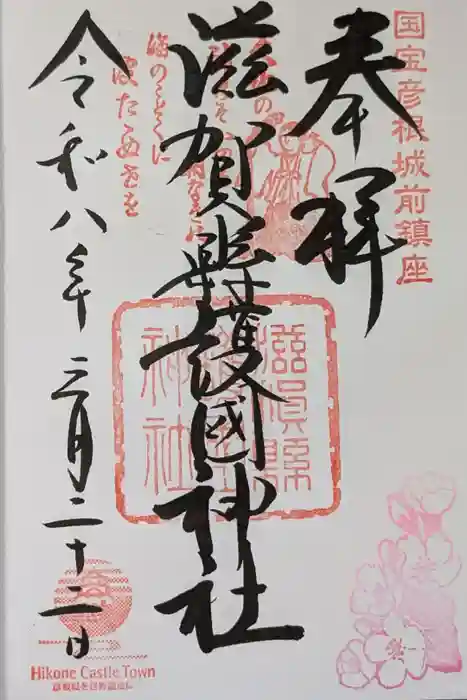 国宝彦根城前鎮座
奉拝
滋賀縣護國神社
滋賀縣
護國
神社
令和八年三月二十二日
Hikone Castle Town